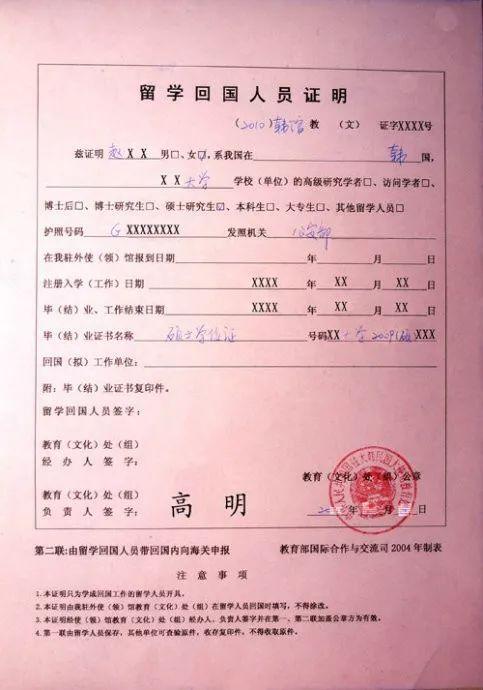 留学回国人员证明
(2010)韩馆教 (文) 证字XXXX号
兹证明 赵XX 男□、女☑,系我国在 韩 国,
XX大学 学校(单位)的高级研究学者□、访问学者□、
博士后□、博士研究生□、硕士研究生☑、本科生□、大专生□、其他留学人员□
护照号码 G XXXXXXXX 发照机关 公安部
在我驻外使(领)馆报到日期 年 月 日
注册入学(工作)日期 XXXX 年 XX 月 XX 日
毕(结)业、工作结束日期 XXXX 年 XX 月 XX 日
毕(结)业证书名称 硕士学位证 号码XX大学2009(硕)XXX
回国(拟)工作单位:
附:毕(结)业证书复印件。
留学回国人员签字:
教育(文化)处(组)
经办人签字:
教育(文化)处(组)公章
教育(文化)处(组)
负责人签字: 高明
年 月 日
第二联:由留学回国人员带回国内向海关申报 教育部国际合作与交流司2004年制表
注意事项
1.本证明只为学成回国工作的留学人员开具。
2.本证明由我驻外使(领)馆教育(文化)处(组)在留学人员回国时填写,不得涂改。
3.本证明经使(领)馆教育(文化)处(组)经办人、负责人签字并在第一、第二联加盖公章方为有效。
4.第一联由留学人员保存,其他单位可查验原件,收存复印件,不得收取原件。